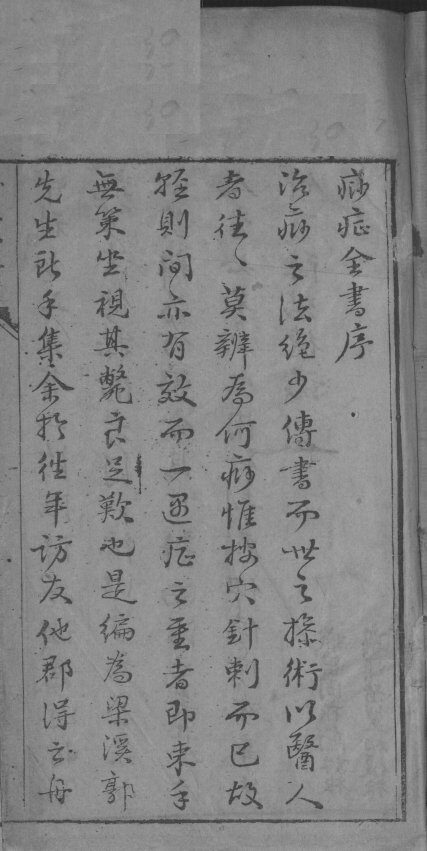 痧症全書序
治痧之法絕少傳書而世之操術以醫人
者往往莫辨為何痧惟按穴針刺而已故
輕則間亦有效而一遇症之重者即束手
無策坐視其斃良足歎也是編為梁溪郭
先生所手集余於往年訪友他郡得之舟